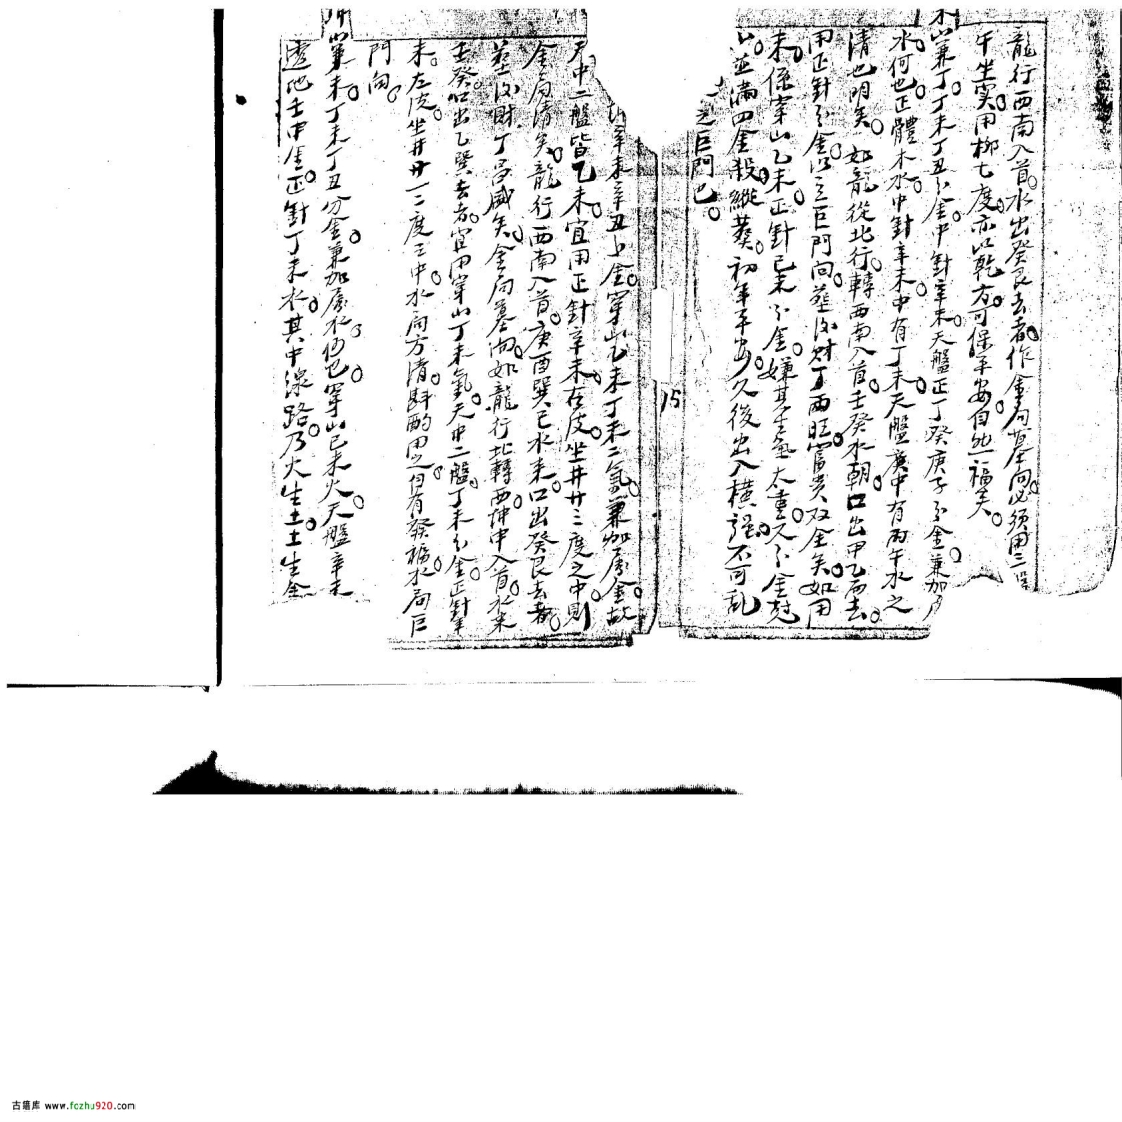 龍行西南入首水出癸艮去者作金局墓向必須用三
午坐穴用柳七度亦以乾方可保平安自然福矣
兼丁丁未丁丑分金中針辛未天盤正丁癸庚子分金兼加
水何也正體木水中針辛未中有丁未天盤庚中有丙午水之
清也明矣如龍從北行轉西南入首壬癸水朝口出甲乙而去
用正針分金以立巨門向塟後財丁兩旺富貴双全矣如用
未係穿山乙未正針己未分金嫌其土氣太重又分金尅
山並滿四金殺縱葬初年平安久後出入橫強不可亂
立巨門也
15
辛未辛丑上金穿山乙未丁未二氣兼加丙金故
中二盤皆乙未宜用正針辛未左皮坐井廿三度之中則
金局清矣龍行西南入首庚酉巽巳水來口出癸艮去者
塟後財丁昌盛矣金局墓向如龍行北轉西坤中入首水来
壬癸口出乙巽去者宜用穿山丁未氣天中二盤丁未分金正針
未左皮坐井廿一二度三中水局方清斟酌用之自有發福水局巨
門向
兼未丁未丁丑分金兼加水也巴穿山己未火天盤辛未
透地壬申金正針丁未水其中線路乃火生土土生金
古籍库 www.fczhu920.com